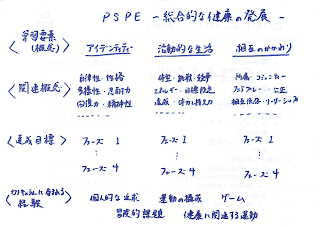 PSPE －総合的な健康の発展－
学習要素
(概念)
アイデンティティー
活動的な生活
相互のかかわり
関連概念
自律性・性格
多様性・忍耐力
回復力・精神性
体型・挑戦・競争
エネルギー・目標設定
達成・体力と持久力
所属・コミュニティー
フェアプレー・公正
相互依存・リーダーシップ
達成目標
フェーズ 1
フェーズ 1
フェーズ 1
⋮
⋮
⋮
フェーズ 4
フェーズ 4
フェーズ 4
カリキュラムに含まれる
経験
個人的な追求
運動の構成
ゲーム
冒険的課題
健康に関連する運動